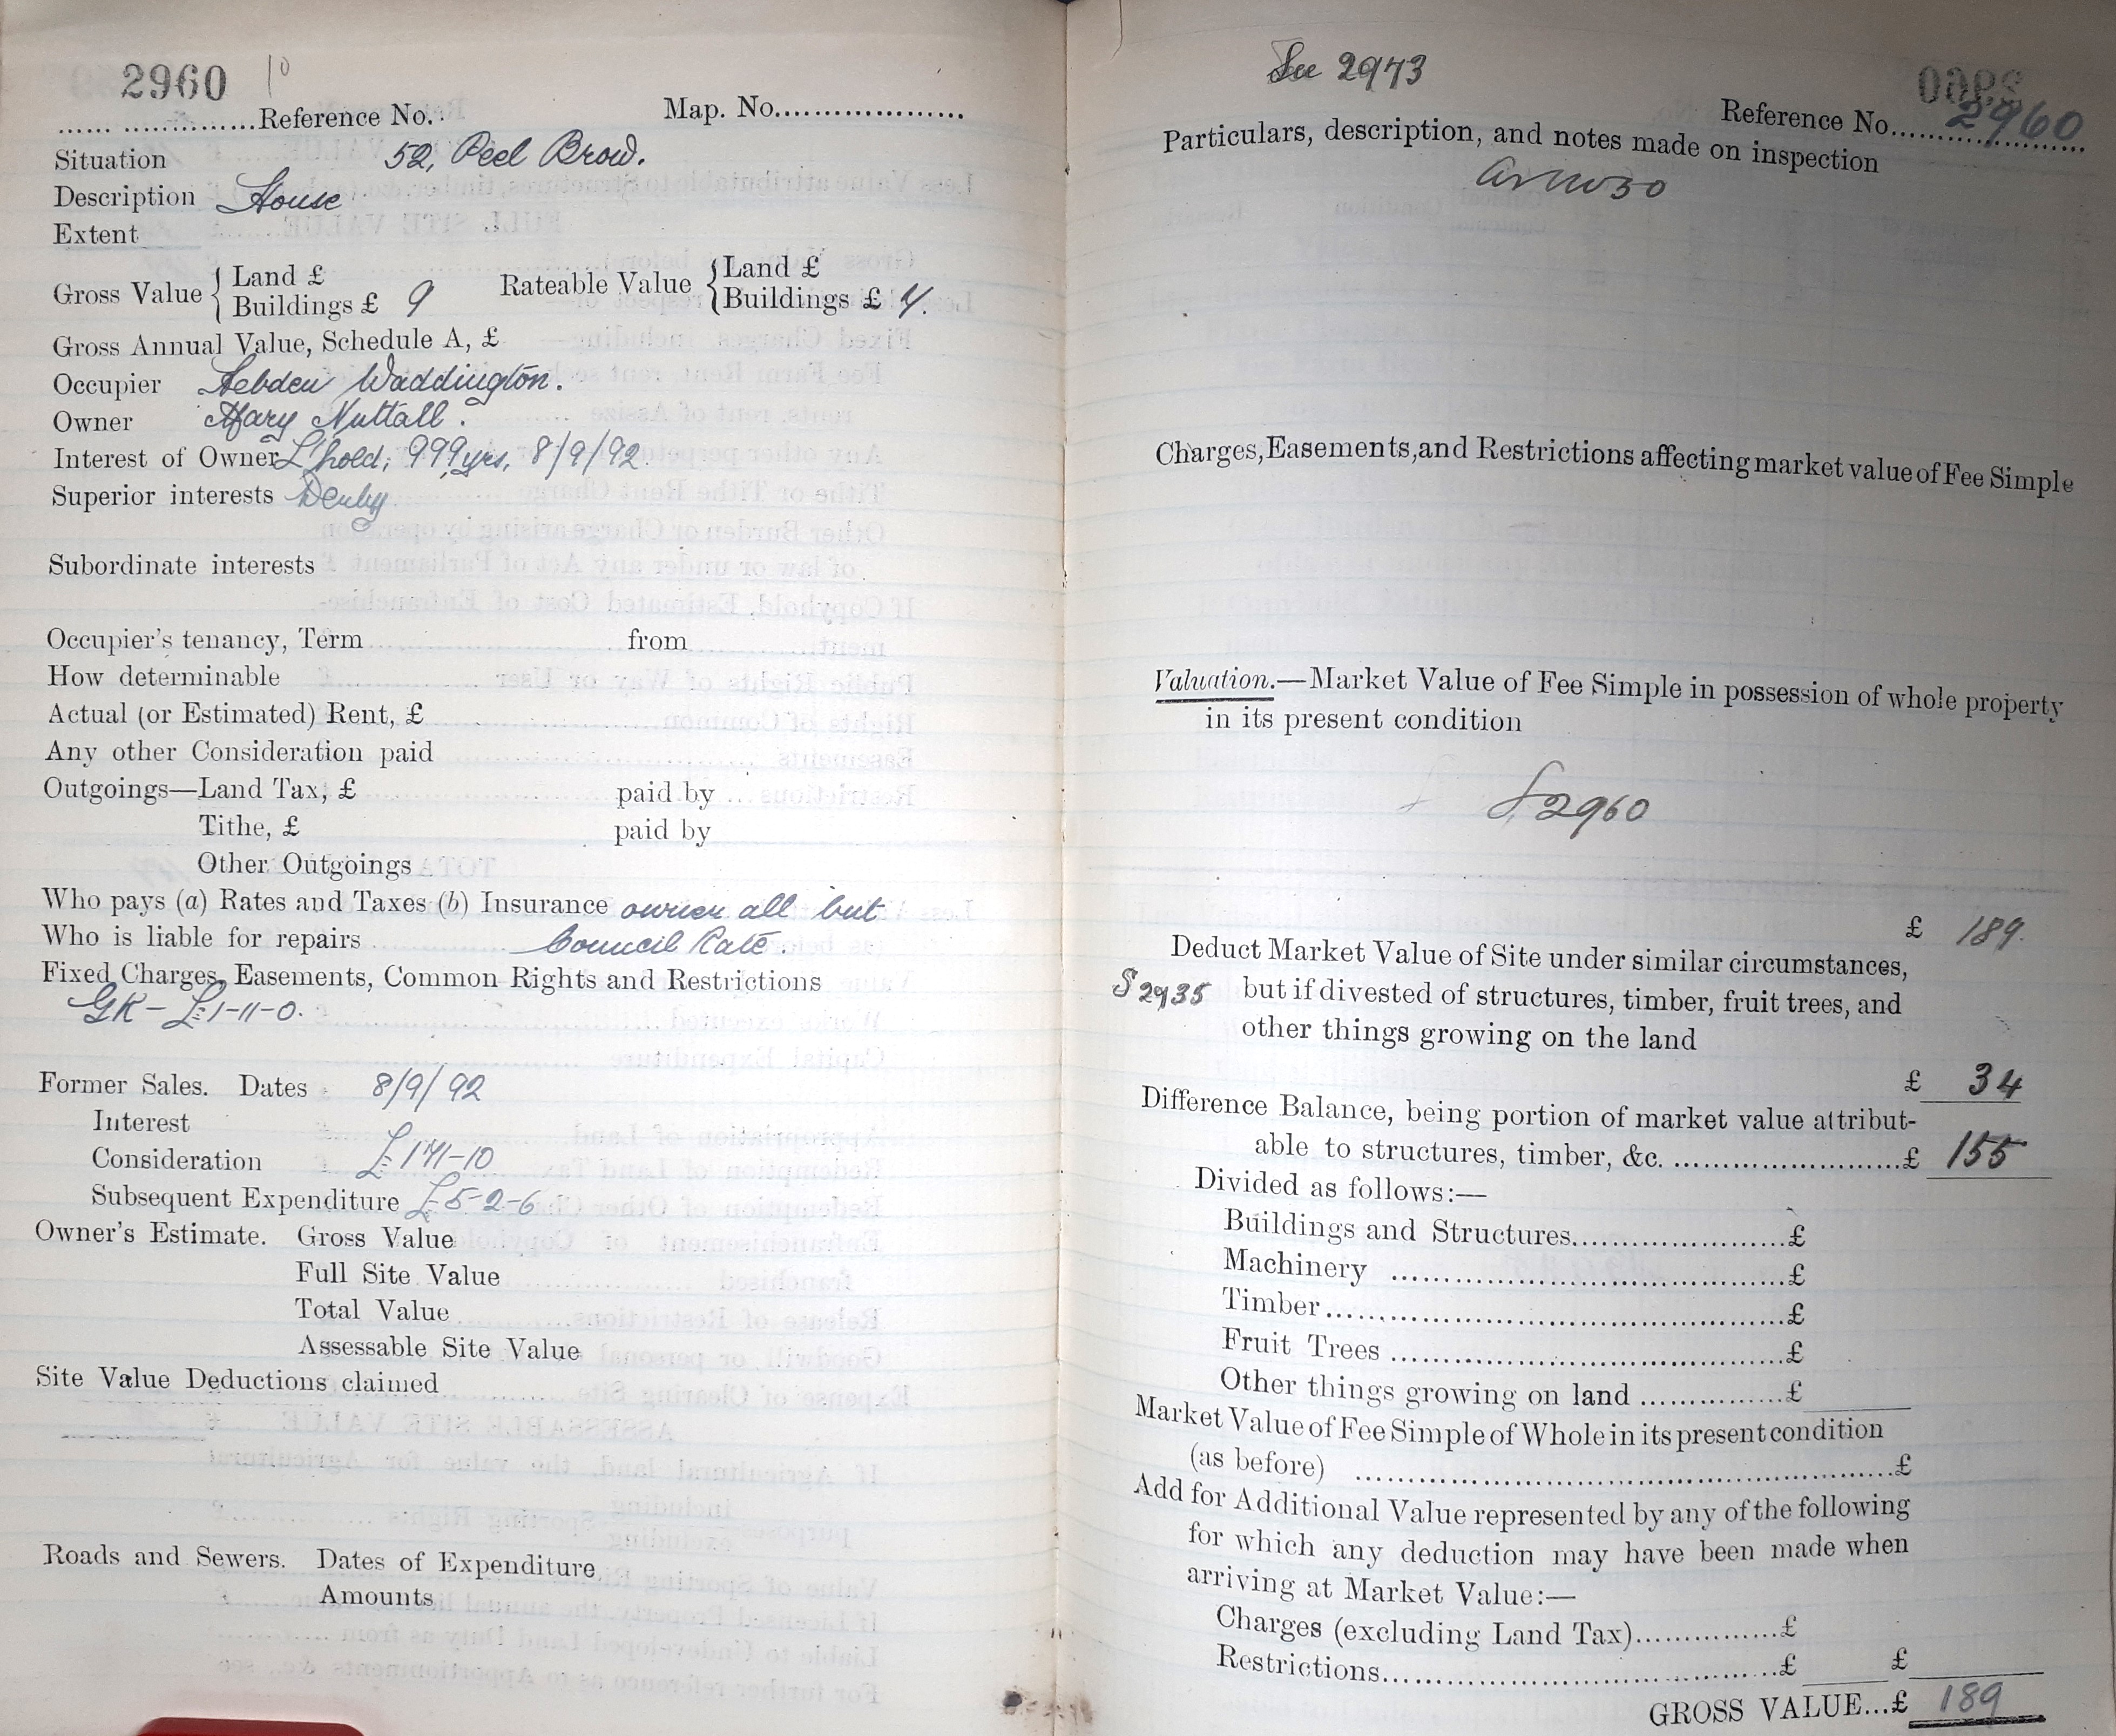 2960 10
...... ..............Reference No. Map. No...................
Situation 52, Peel Brow.
Description House
Extent
Gross Value { Land £ Rateable Value { Land £
Buildings £ 9 Buildings £ 7.
Gross Annual Value, Schedule A, £
Occupier Hebden Waddington.
Owner Mary Nuttall.
Interest of Owner L'hold; 999 yrs, 8/9/92
Superior interests Derby
Subordinate interests
Occupier's tenancy, Term from
How determinable
Actual (or Estimated) Rent, £
Any other Consideration paid
Outgoings—Land Tax, £ paid by
Tithe, £ paid by
Other Outgoings
Who pays (a) Rates and Taxes (b) Insurance owner all but
Who is liable for repairs Council Rate.
Fixed Charges, Easements, Common Rights and Restrictions
GR - £1-11-0.
Former Sales. Dates 8/9/92
Interest
Consideration £171-10
Subsequent Expenditure £5-2-6
Owner's Estimate. Gross Value
Full Site Value
Total Value
Assessable Site Value
Site Value Deductions claimed
Roads and Sewers. Dates of Expenditure
Amounts
See 2973
Reference No. 2960
Particulars, description, and notes made on inspection
Charges, Easements, and Restrictions affecting market value of Fee Simple
Valuation.—Market Value of Fee Simple in possession of whole property
in its present condition
S 2960
£ 189.
Deduct Market Value of Site under similar circumstances,
S 2935 but if divested of structures, timber, fruit trees, and
other things growing on the land
£ 34
Difference Balance, being portion of market value attribut-
able to structures, timber, &c. ..............................£ 155
Divided as follows:—
Buildings and Structures........................£
Machinery ............................................£
Timber...................................................£
Fruit Trees ............................................£
Other things growing on land ................£
Market Value of Fee Simple of Whole in its present condition
(as before) ............................................................£
Add for Additional Value represented by any of the following
for which any deduction may have been made when
arriving at Market Value:—
Charges (excluding Land Tax)................£
Restrictions............................................£ £
GROSS VALUE...£ 189